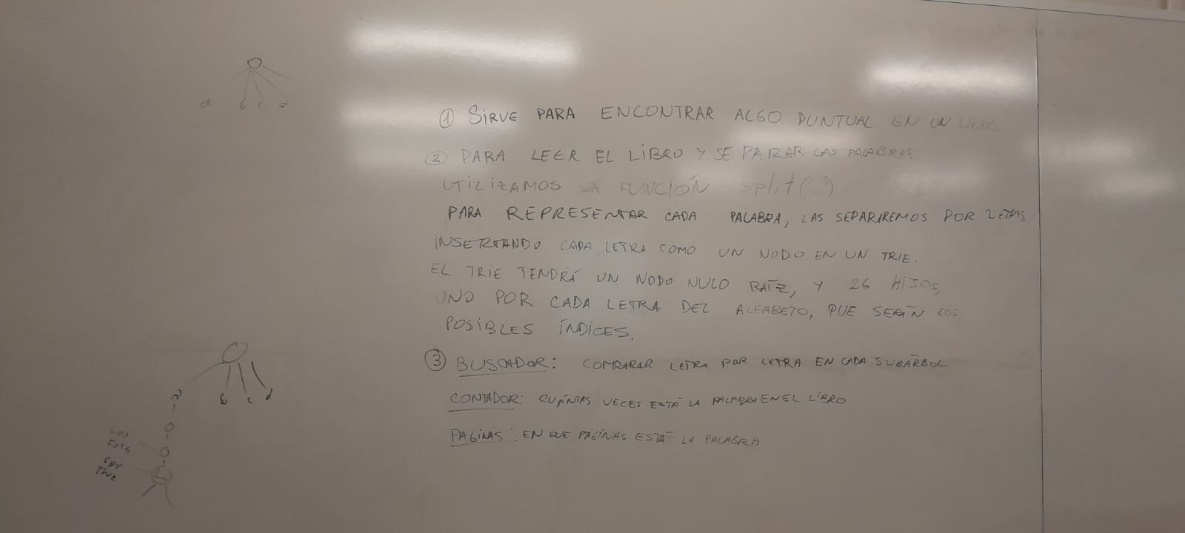 ① SIRVE PARA ENCONTRAR ALGO PUNTUAL EN UN LIBRO
② PARA LEER EL LIBRO Y SEPARAR LAS PALABRAS
UTILIZAMOS LA FUNCIÓN split( )
PARA REPRESENTAR CADA PALABRA, LAS SEPARAREMOS POR LETRAS
INSERTANDO CADA LETRA COMO UN NODO EN UN TRIE.
EL TRIE TENDRÁ UN NODO NULO RAÍZ, Y 26 HIJOS,
UNO POR CADA LETRA DEL ALFABETO, QUE SERÁN LOS
POSIBLES ÍNDICES.
③ BUSCADOR: COMPARAR LETRA POR LETRA EN CADA SUBÁRBOL
CONTADOR: CUÁNTAS VECES ESTÁ LA PALABRA EN EL LIBRO.
PAGINAS: EN QUE PAGINAS ESTÁ LA PALABRA.
a b c d
b c d